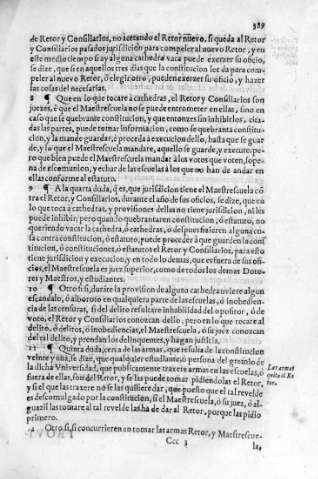 389
de Retor y Consiliarios, no acetando el Retor nuevo, si queda al Retor
y Consiliarios passados jurisdicion para compeler al nuevo Retor, y en
este medio tiempo si ay alguna cathedra vaca puede exercer su oficio,
se dize, que si en aquellos tres dias que la constitucion les da para com-
peler al nuevo Retor, ó elegir otro, pueden exercer su oficio, y hazer
las cosas del necesarias.
8 ¶ Que en lo que tocare à cathedras, el Retor y Consiliarios son
juezes, è que el Maestrescuela no se puede entrometer en ellas, sino en
caso que se quebrante constitucion, y que entonces sin inhibirlos, cita-
das las partes, puede tomar informacion, como se quebranta constitu-
cion, y la mande guardar, è proceda à execucion dello, hasta que se guar
de, y lo que el Maestrescuela mandare, aquello se guarde, y execute, pe-
ro que bien puede el Maestrescuela mandar à los votos que voten, so pe-
na de excomunion, y echar de las escuelas à los que no han de andar en
ellas conforme al estatuto.
9 ¶ A la quarta duda, q̃ es, que jurisdicion tiene el Maestrescuela cõ
tra el Retor, y Consiliarios, durante el año de sus oficios, se dize, que en
lo que toca à cathedras, y provisiones dellas no tiene jurisdicion, ni les
puede inhibir, pero que si quebrantaren constitucion, ó estatuto, no
queriendo vacar la cathedra, ó cathedras, ó despues hizieren alguna co-
sa contra constitucion, ó estatuto, puede proceder à que guarden la conſ
titucion, ó constituciones, ó estatutos el Retor y Consiliarios, para esto
tiene jurisdicion y execucion, y en todo lo demas, que es fuera de sus ofi-
cios, el Maestrescuela es juez superior, como de todos los demas Doto-
res y Maestros, y estudiantes.
10 ¶ Otro si, durãte la provision de alguna cathedra uviere algun
escãndalo, ó alboroto en qualquiera parte de las escuelas, ó inobedien-
cia de las censuras, si del delito resultare inhabilidad del opositor, ó de
voto, el Retor y Consiliarios conozcan dello, pero en lo que tocare al
delito, ó delitos, ó inobediencias, el Maestrescuela, ó su juez conozcan
del tal delito, y prendan los delinquentes, y hagan justicia.
11 ¶ Quinta duda, cerca de las armas, que resulta de la constitucion
veinte y una, se dize, que qualquier estudiante, ó persona del gremio de
la dicha Vniversidad, que publicamente traxere armas en las escuelas, ó
fuera de ellas, son del Retor, y se las puede tomar pidiendolas el Retor,
y si el que las traxere no se las quisiere dar, que puesto que el tal revelde
es descomulgado por la constitucion, si el Maestrescuela, ó su juez, ó al-
guazil las tomare al tal revelde las ha de dar al Retor, porque las pidio
primero.
Las armas
quita el Re
tor.
Otro si, si concurrieren en tomar las armas Retor, y Maestrescue-
Ccc 3
la,